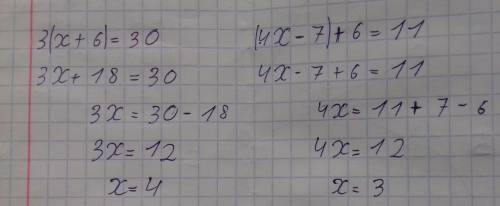 3(x+6)=30
3x+18=30
3x=30-18
3x=12
x=4
(4x-7)+6=11
4x-7+6=11
4x=11+7-6
4x=12
x=3